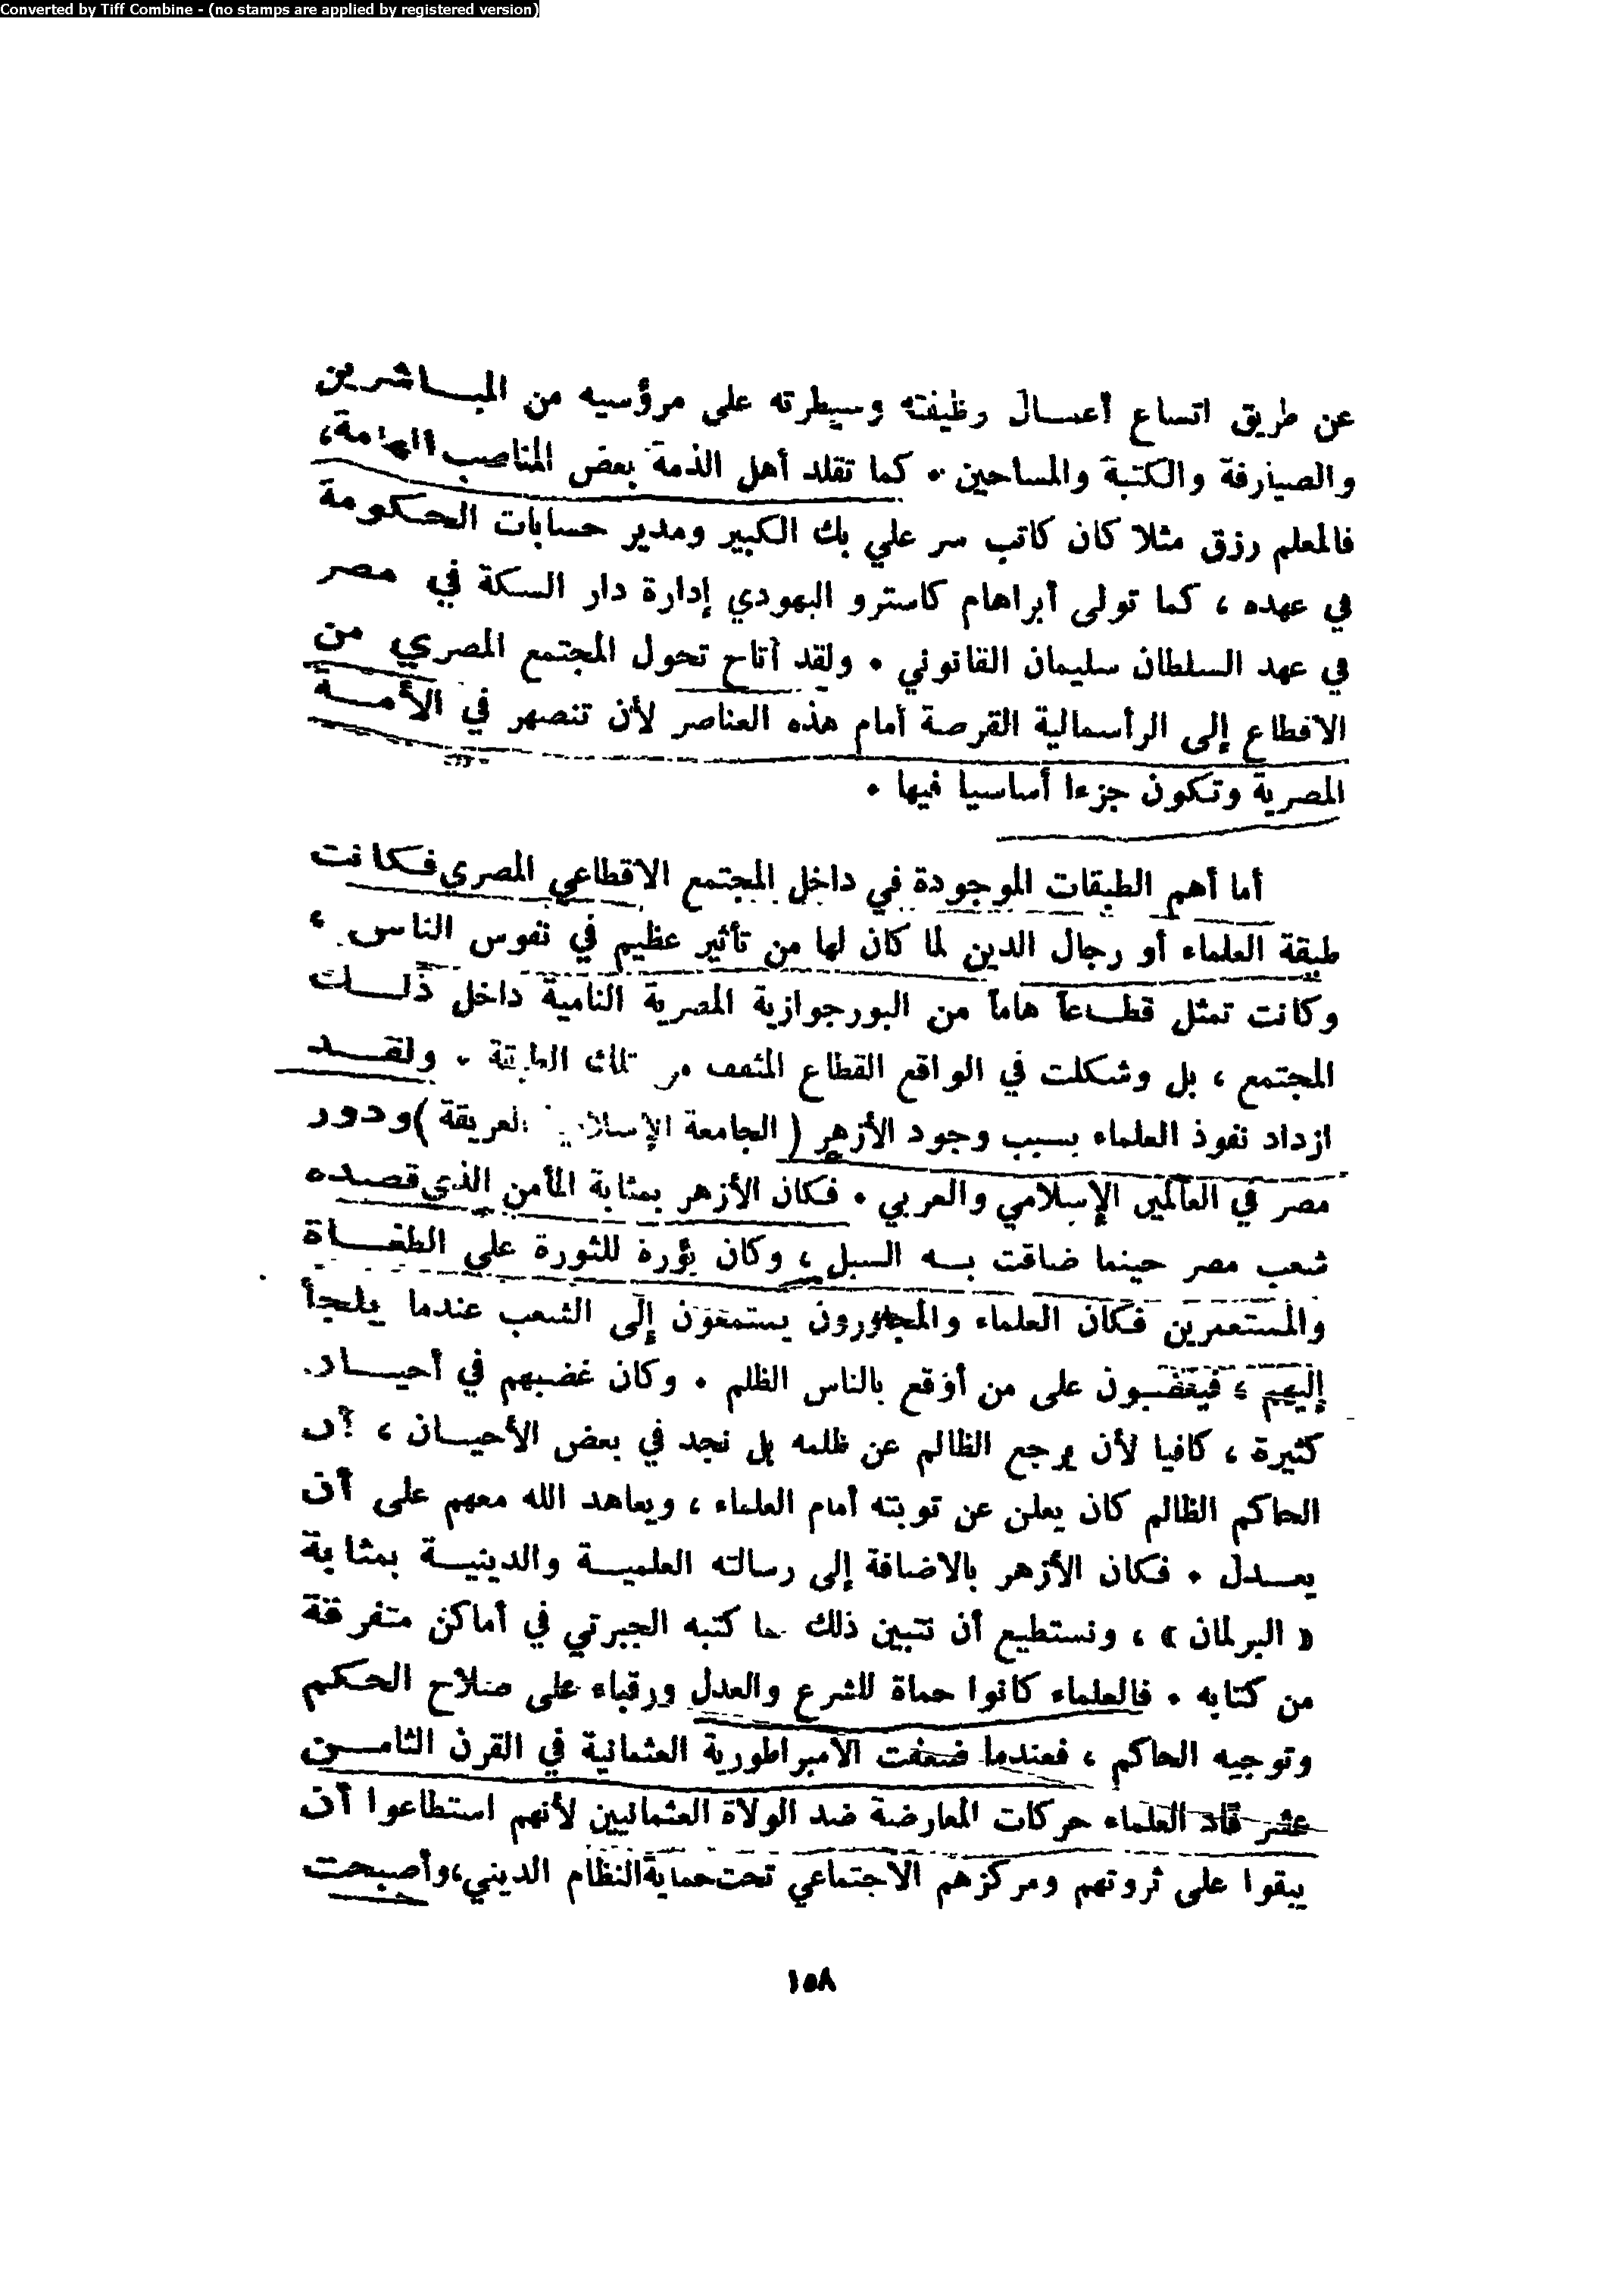 Converted by Tiff Combine - (no stamps are applied by registered version)
عن طريق اتساع أعمال وظيفته وسيطرته على مرؤسيه من المباشرين
والصيارفة والكتبة والمساحين . كما تقلد أهل الذمة بعض المناصب الهامة،
فالمعلم رزق مثلا كان كاتب سر علي بك الكبير ومدير حسابات الحكومة
في عهده ، كما تولى أبراهام كاسترو اليهودي إدارة دار السكة في مصر
في عهد السلطان سليمان القانوني . ولقد أتاح تحول المجتمع المصري من
الاقطاع إلى الرأسمالية الفرصة أمام هذه العناصر لأن تنصهر في الأمة
المصرية وتكون جزءا أساسيا فيها .
أما أهم الطبقات الموجودة في داخل المجتمع الاقطاعي المصري فكانت
طبقة العلماء أو رجال الدين لما كان لها من تأثير عظيم في نفوس الناس ،
وكانت تمثل قطاعاً هاماً من البورجوازية المصرية النامية داخل ذلك
المجتمع ، بل وشكلت في الواقع القطاع المثقف من تلك الطبقة . ولقد
ازداد نفوذ العلماء بسبب وجود الأزهر ( الجامعة الإسلامية العريقة ) ودور
مصر في العالمين الإسلامي والعربي . فكان الأزهر بمثابة المأمن الذي قصده
شعب مصر حينما ضاقت به السبل ، وكان بؤرة للثورة على الطغاة
والمستعمرين فكان العلماء والمجاورون يستمعون إلى الشعب عندما يلجأ
إليهم ، فيغضبون على من أوقع بالناس الظلم . وكان غضبهم في أحيان
كثيرة ، كافيا لأن يرجع الظالم عن ظلمه بل نجد في بعض الأحيان ، أن
الحاكم الظالم كان يعلن عن توبته أمام العلماء ، ويعاهد الله معهم على أن
يعدل . فكان الأزهر بالاضافة إلى رسالته العلمية والدينية بمثابة
« البرلمان » ، ونستطيع أن نتبين ذلك مما كتبه الجبرتي في أماكن متفرقة
من كتابه . فالعلماء كانوا حماة للشرع والعدل ورقباء على صلاح الحكم
وتوجيه الحاكم ، فعندما ضعفت الامبراطورية العثمانية في القرن الثامن
عشر قاد العلماء حركات المعارضة ضد الولاة العثمانيين لأنهم استطاعوا أن
يبقوا على ثروتهم ومركزهم الاجتماعي تحت حماية النظام الديني، وأصبحت
١٥٨